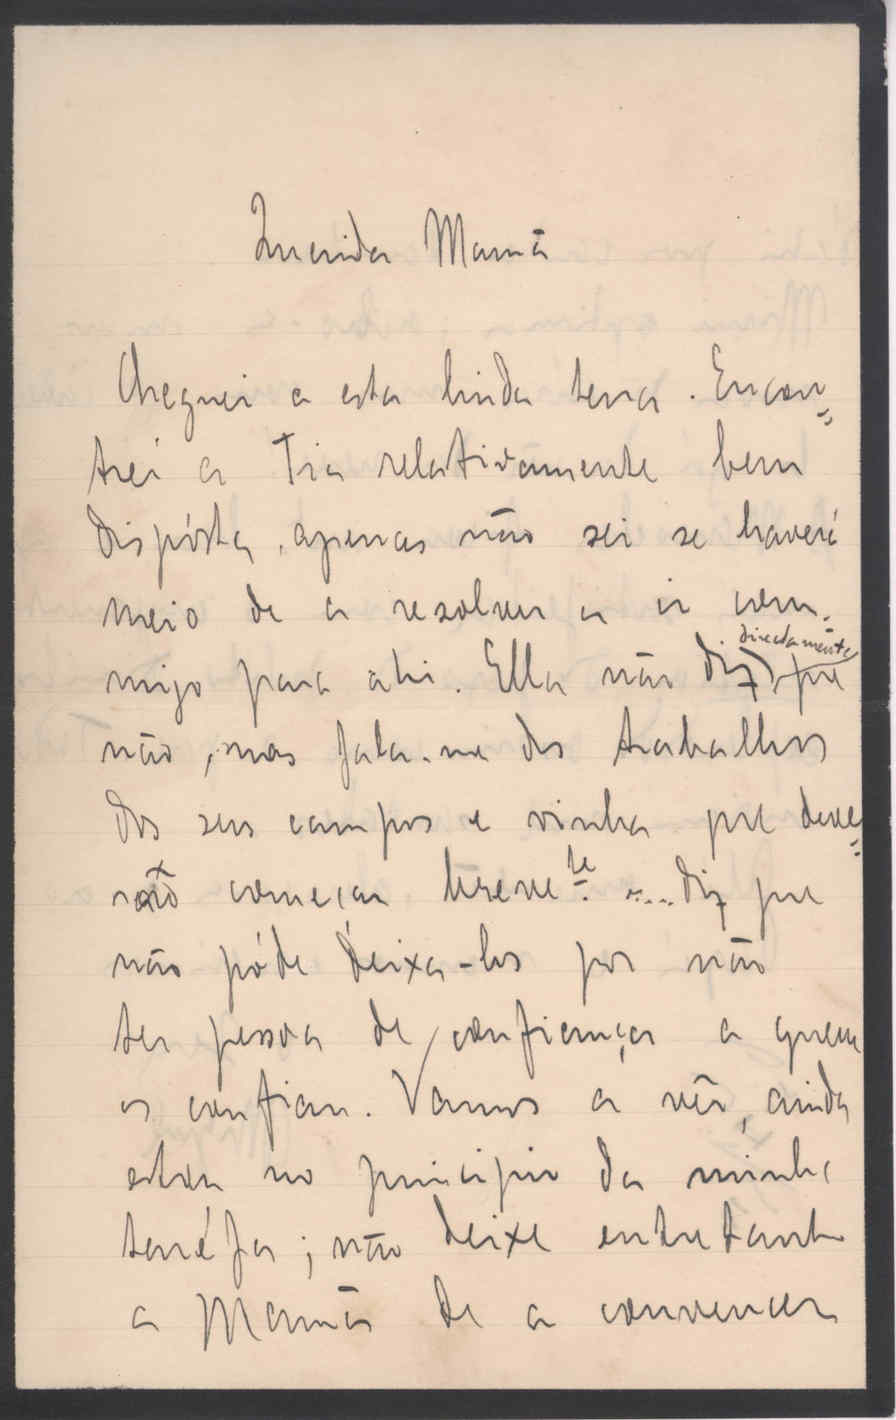 Querida Mamã
Cheguei a esta linda terra. Encon-
trei a Tia relativamente bem
dispósta, apenas não sei se haverá
meio de a resolver a ir com-
migo para ahi. Ella não diz directamente que
não, mas fala-me dos trabalhos
dos seus campos e vinha que deve-
rão começar breve te. .... diz que
não póde deixa-los por não
ter pessoa de confiança a quem
os confiar. Vamos a vêr, ainda
estou no principio da minha
taréfa; não deixe entretanto
a Mamã de a convencer